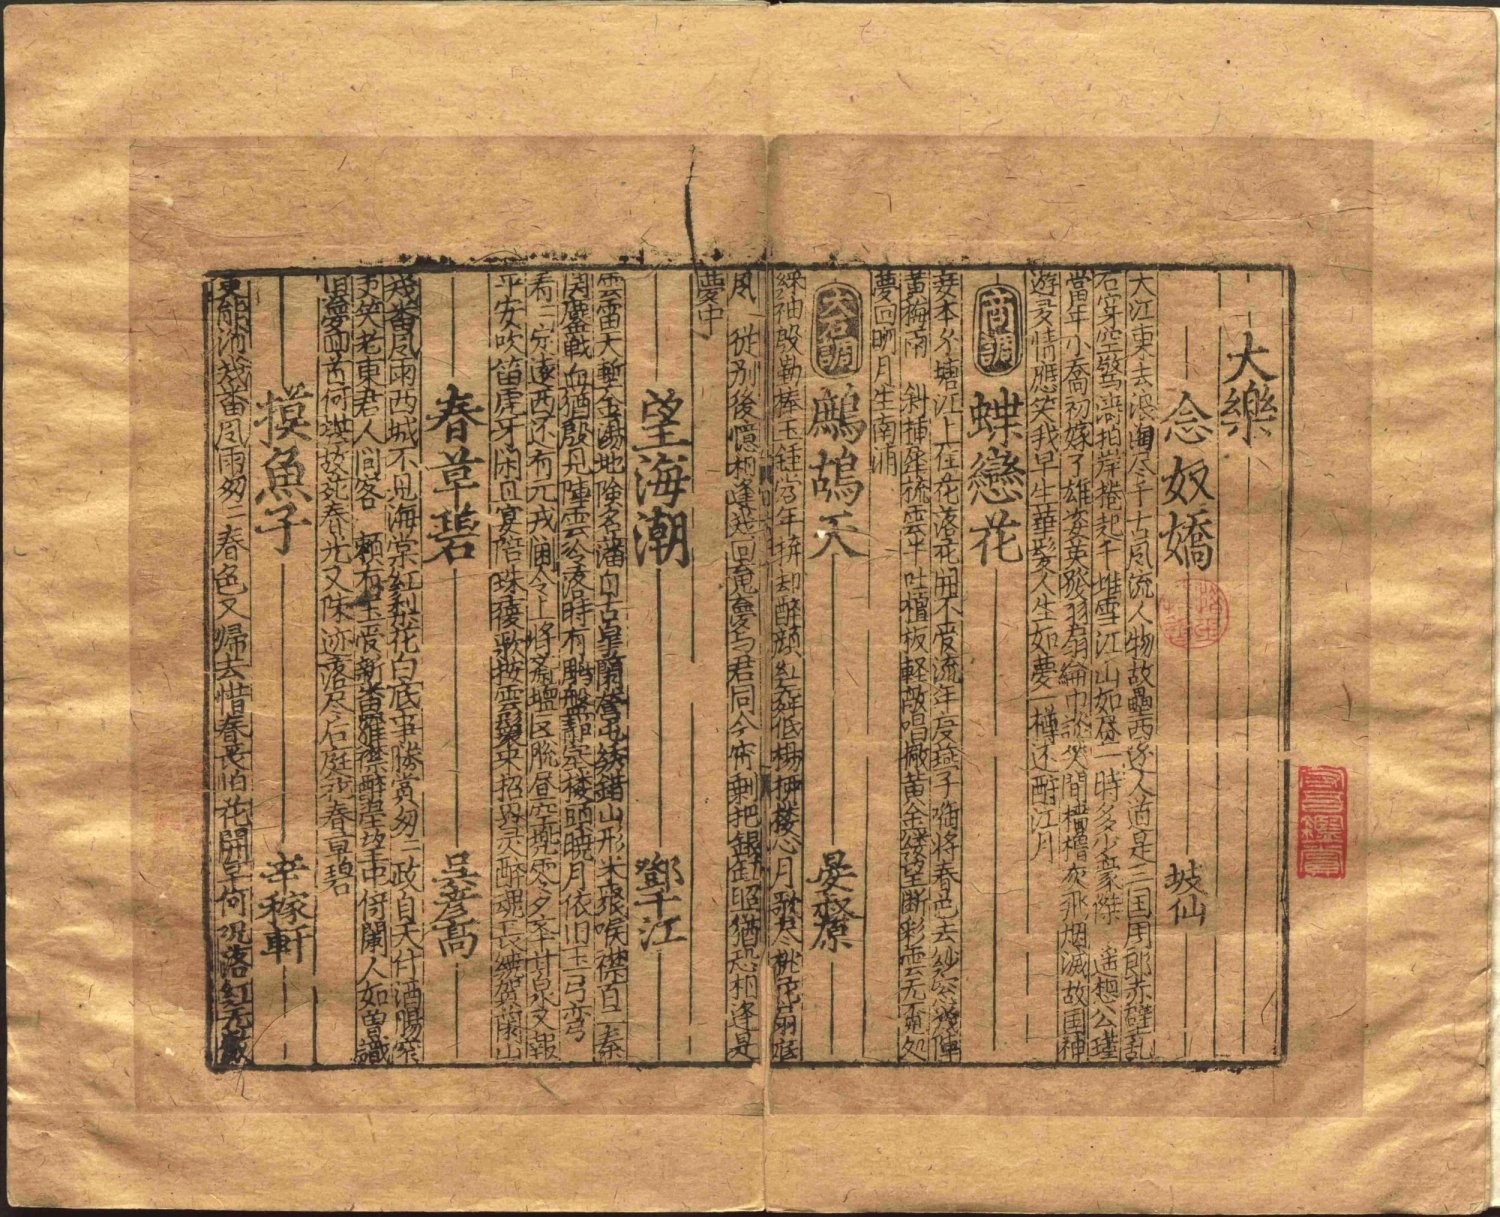 大樂
念奴嬌 坡仙
大江東去浪淘尽千古風流人物故壘西邊人道是三国周郎赤壁乱
石穿空驚濤拍岸捲起千堆雪江山如昼一時多少豪傑 遥想公瑾
當年小喬初嫁了雄姿英發羽扇綸巾談笑間檣櫓灰飛烟滅故国神
遊多情應笑我早生華髮人生如夢一樽还酹江月
商調 蝶戀花
妾本錢塘江上住花落花開不管流年度燕子啣將春色去紗窓幾陣
黃梅雨 斜插犀梳雲半吐檀板輕敲唱徹黃金縷望断彩雲无覓処
夢回明月生南浦
大石調 鷓鴣天 晏叔原
綵袖殷勤捧玉鍾當年拚却醉顔紅舞低楊柳楼心月歌尽桃花扇底
風 從别後憶相逢幾回魂夢与君同今宵剩把銀缸照猶恐相逢是
夢中
望海潮 鄧千江
雲雷天塹金湯地險名藩自古皋蘭營屯綉錯山形米聚喉襟百二秦
関鏖戰血猶殷見陣雲冷落時有鵰盤静塞楼頭曉月依旧玉弓彎
看〻定遠西还有元戎閫令上將齋壇区脫昼空兜零夕举甘泉又報
平安吹笛虎牙閑且宴陪珠履歌按雲鬟未招英灵醉魂長繞賀蘭山
春草碧 吴彦高
幾番風雨西城不見海棠紅梨花白底事勝賞匆〻政自天付酒腸窄
更笑老東君人間客 賴有玉管新番羅襟醉墨望中倚闌人如曽識
旧夢回首何堪故苑春光又陳迹落尽后庭花春草碧
摸魚子 辛稼軒
更能消幾番風雨匆〻春色又歸去惜春長怕花開早何况落紅无数